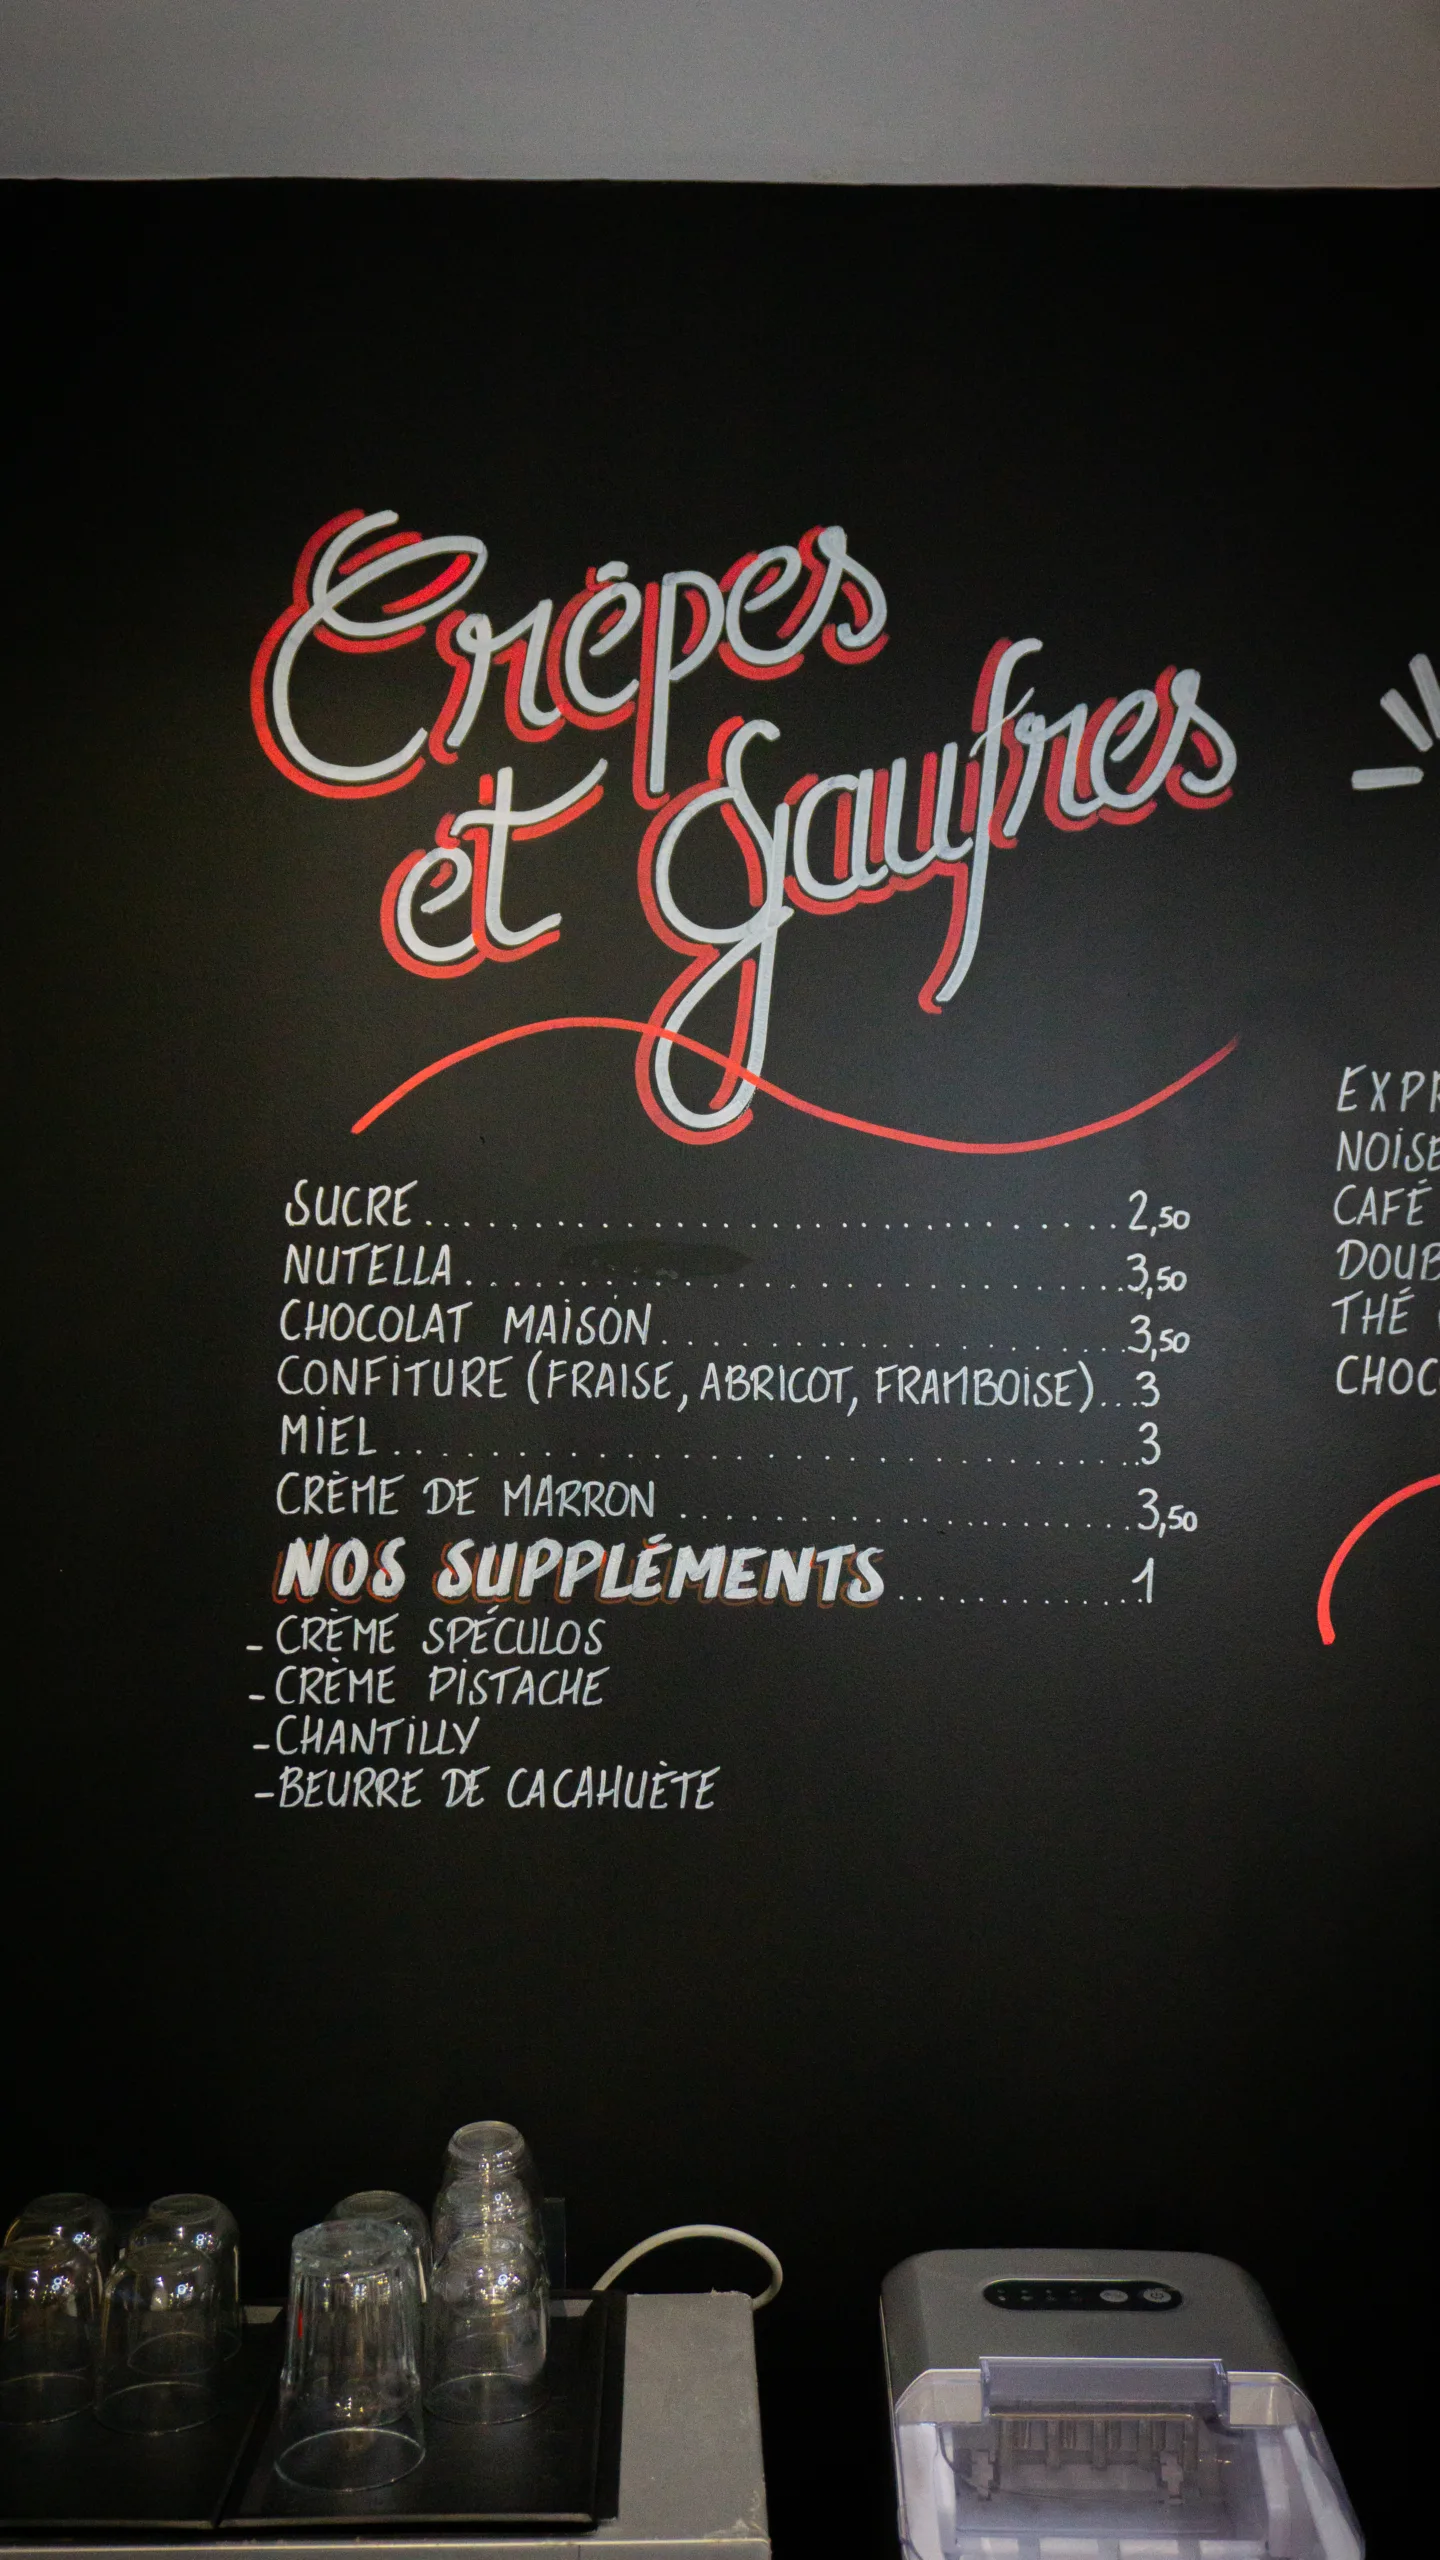 Crêpes
et gaufres
SUCRE 2,50
NUTELLA 3,50
CHOCOLAT MAISON 3,50
CONFITURE (FRAISE, ABRICOT, FRAMBOISE) 3
MIEL 3
CRÈME DE MARRON 3,50
NOS SUPPLÉMENTS 1
- CRÈME SPÉCULOS
- CRÈME PISTACHE
- CHANTILLY
- BEURRE DE CACAHUÈTE
CAFÉ
THÉ